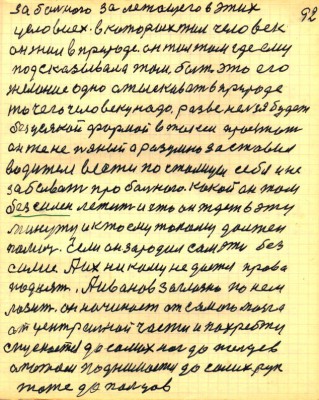 92
за больного залетающего в этих
условиех. в которых жил человек
он жил в природе. он жил там где ему
подсказывала там быть это его
желание одно отыскивать в природе
то чего человеку надо. разве нельзя будет
без всякой формой в жизни
он же не пяный а разумно заставил
водителя вести по столицы себя и не
забывать про больного. какой он там
без силен лежит и что он ждет в эту
минуту и кто ему такому должен
помоч. Если он зародил сам эти без
силие Аих никому не дается права
поднять. А Иванов за мозга по нем
лазит. он начинает от самого мозга
от центральной части и по хребту
спускается до самих ног до
а потом поднимается до самих рук
тоже до пальцов